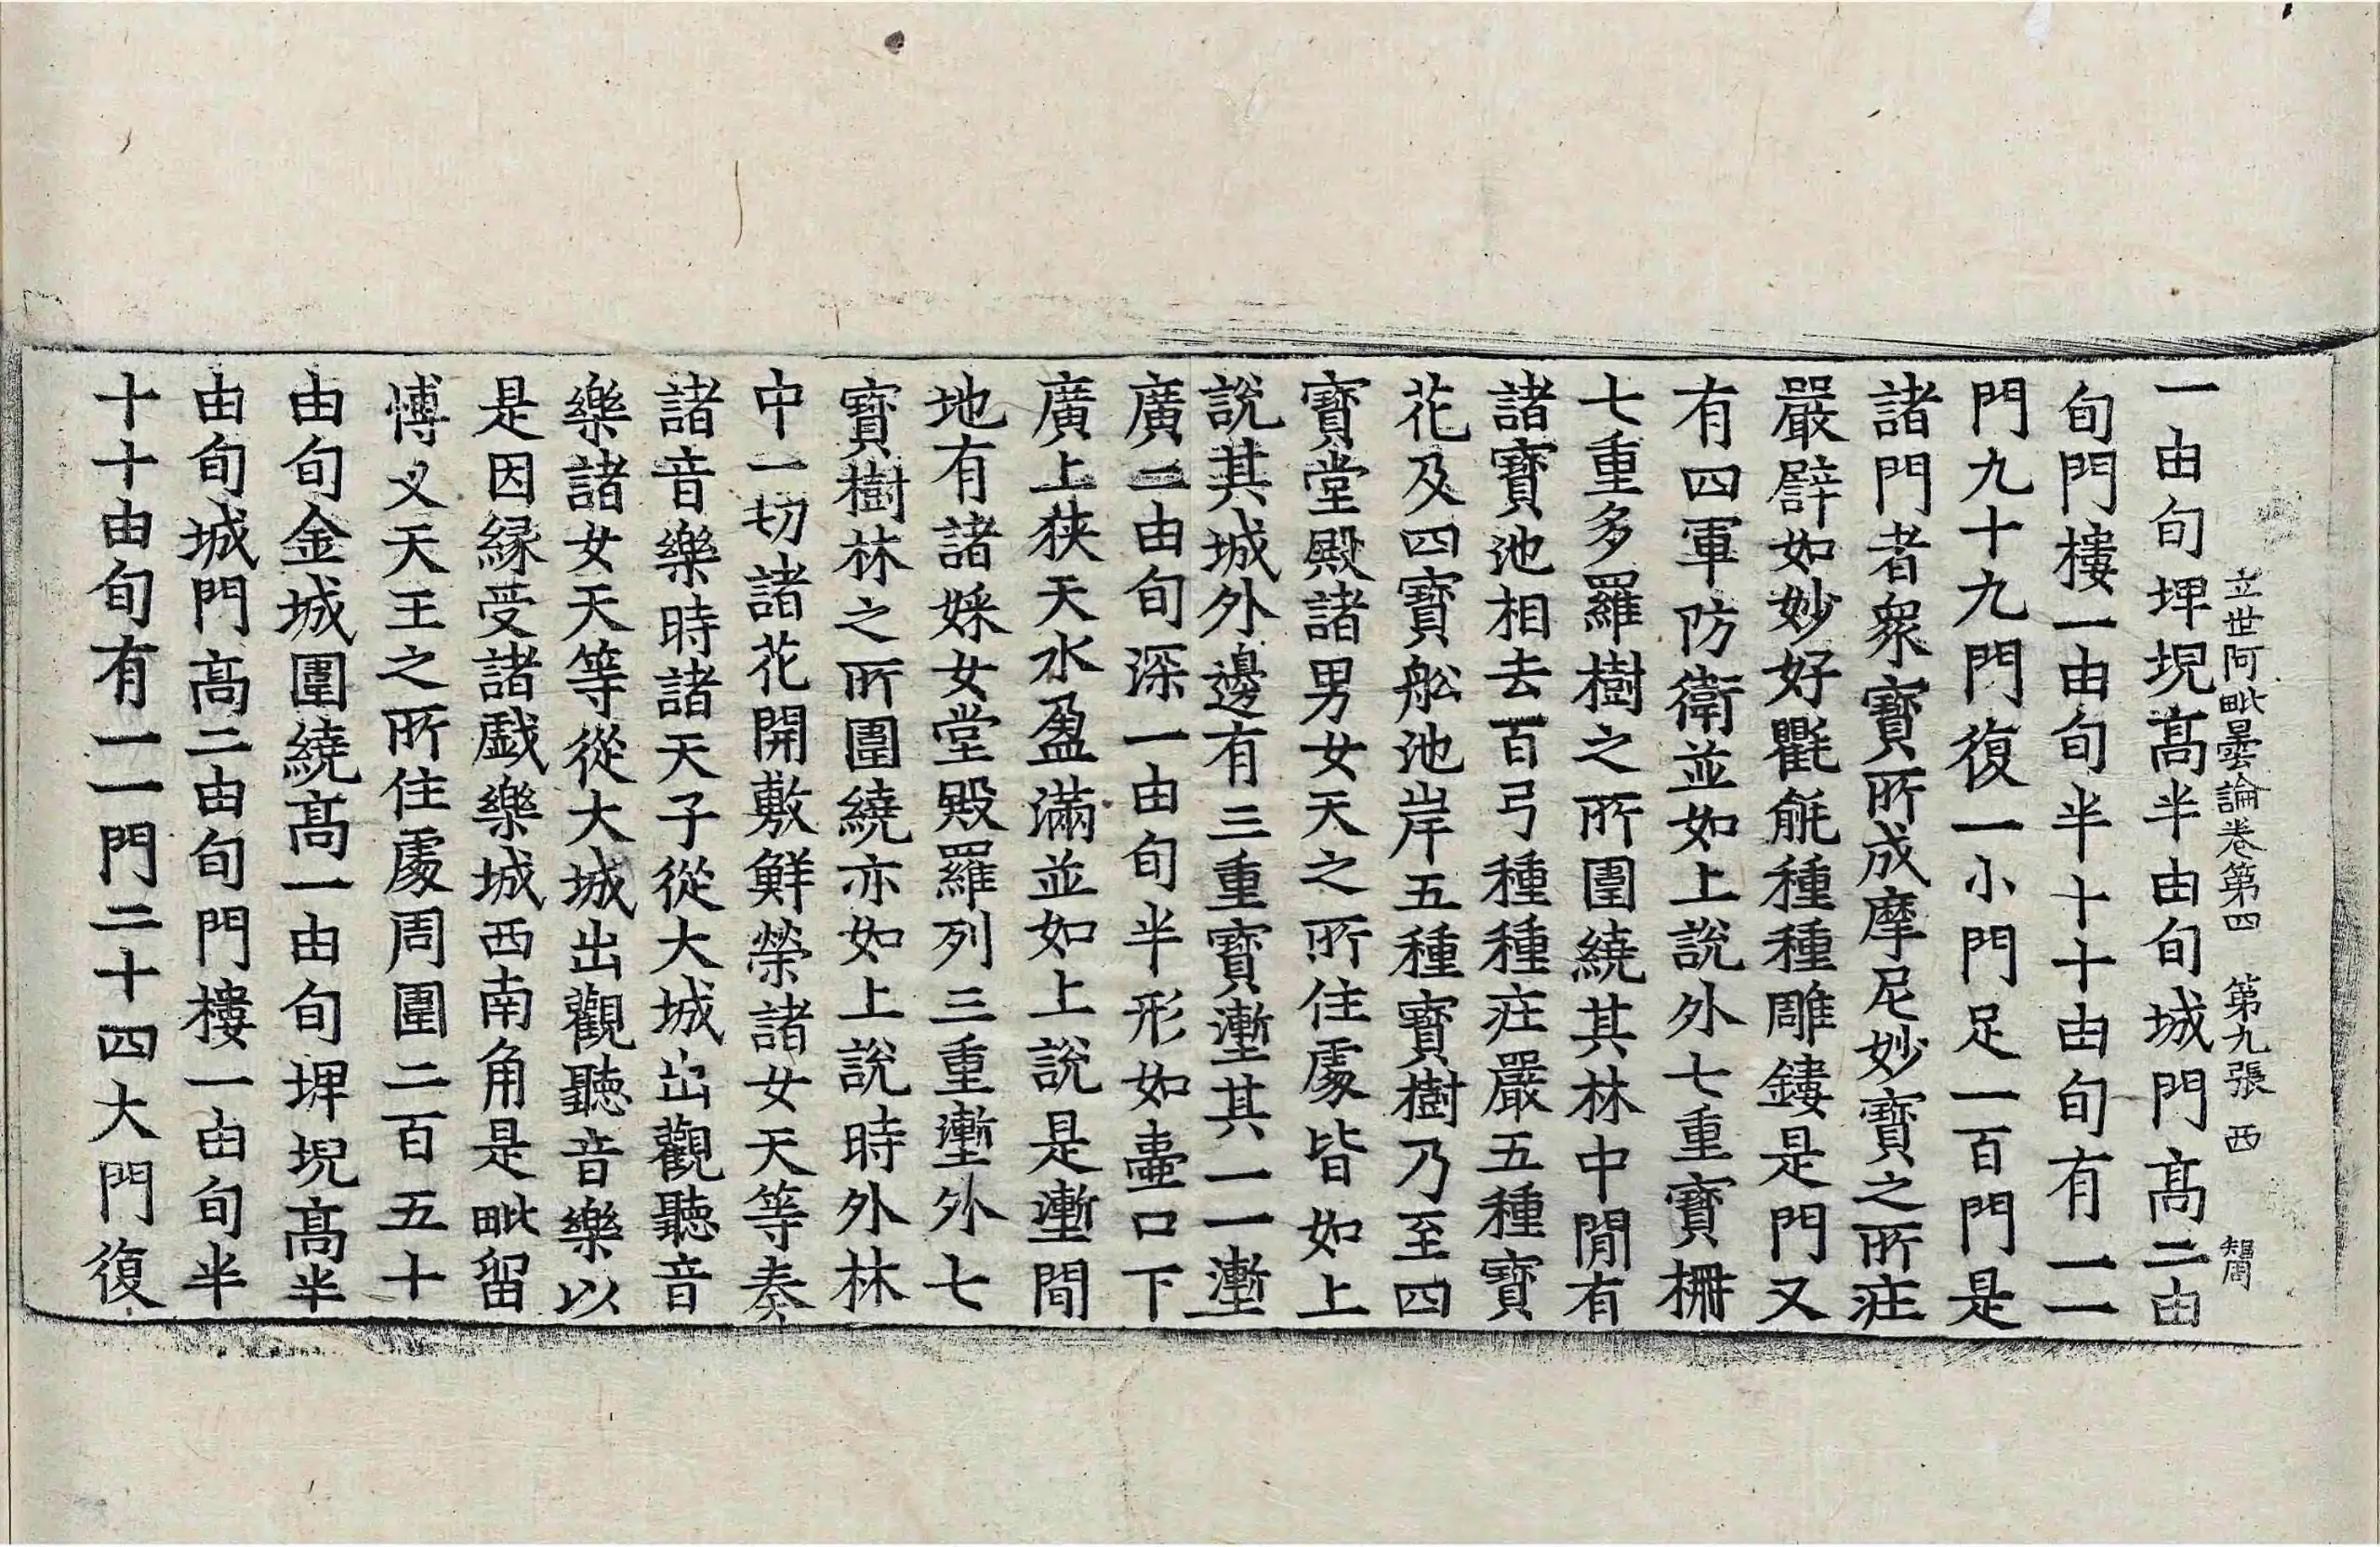 立世阿毗曇論卷第四　第九張　西
一由旬埤堄髙半由旬城門髙二由
旬門樓一由旬半十十由旬有一一
門九十九門復一小門足一百門是
諸門者衆寶所成摩尼妙寶之所莊
嚴譬如妙好氍毹種種雕鏤是門又
有四軍防衛並如上說外七重寶柵
七重多羅樹之所圍繞其林中閒有
諸寶池相去百弓種種莊嚴五種寶
花及四寶船池岸五種寶樹乃至四
寶堂殿諸男女天之所住處皆如上
說其城外邊有三重寶壍其一一壍
廣二由旬深一由旬半形如壷口下
廣上狹天水盈滿並如上說是壍間
地有諸婇女堂殿羅列三重壍外七
寶樹林之所圍繞亦如上說時外林
中一切諸花開敷鮮榮諸女天等奏
諸音樂時諸天子從大城出觀聽音
樂諸女天等從大城出觀聽音樂以
是因緣受諸戲樂城西南角是毗留
博叉天王之所住處周圍二百五十
由旬金城圍繞髙一由旬埤堄髙半
由旬城門髙二由旬門樓一由旬半
十十由旬有一一門二十四大門復